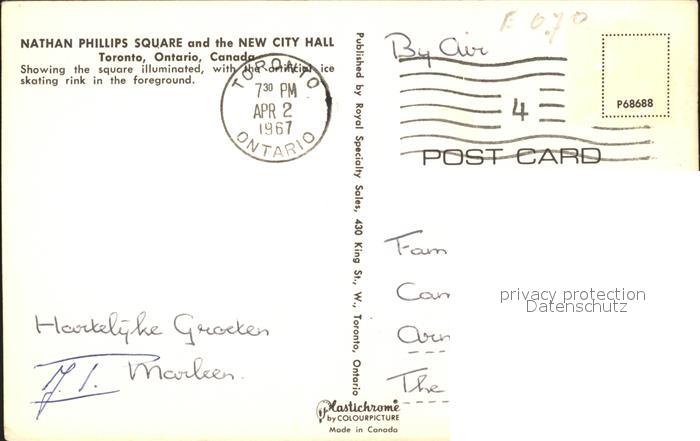 E 670
NATHAN PHILLIPS SQUARE and the NEW CITY HALL
Toronto, Ontario, Canada
Showing the square illuminated, with the artificial ice
skating rink in the foreground.
TORONTO
7³⁰ PM
APR 2
1967
ONTARIO
Published by Royal Specialty Sales, 430 King St., W., Toronto, Ontario
By Air
4
P68688
POST CARD
Fam
Can
Arn
The
privacy protection
Datenschutz
Hartelijke Groeten
Marleen.
Plastichrome
by COLOURPICTURE
Made in Canada